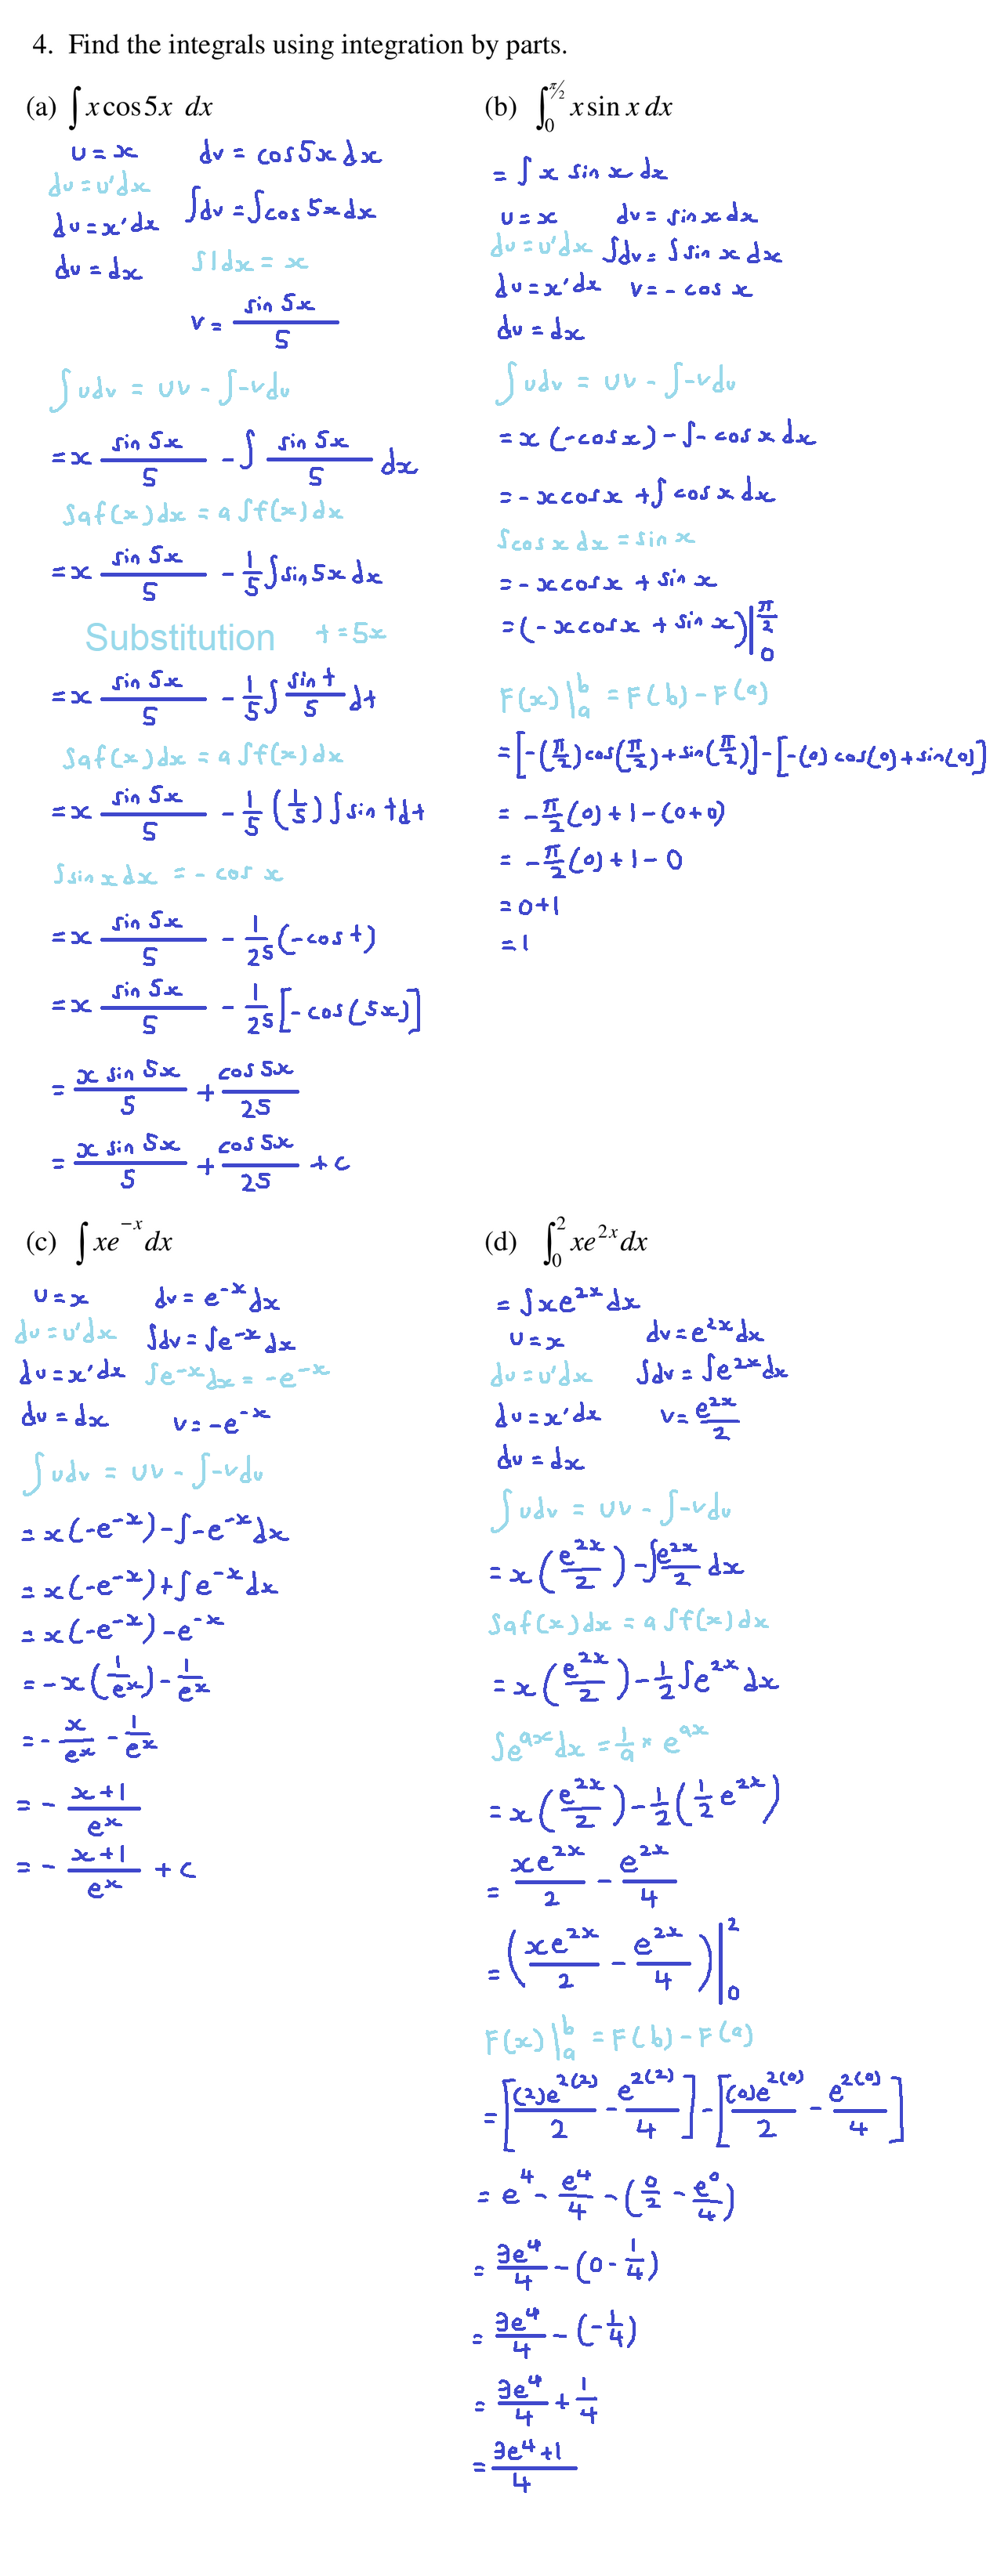 4. Find the integrals using integration by parts.
(a) ∫ x cos 5x dx
u = x dv = cos 5x dx
du = u'dx
du = x'dx ∫dv = ∫cos 5x dx
du = dx ∫1dx = x
v = sin 5x / 5
∫udv = uv - ∫-vdu
= x sin 5x / 5 - ∫ sin 5x / 5 dx
∫af(x)dx = a∫f(x)dx
= x sin 5x / 5 - 1/5 ∫sin 5x dx
Substitution t = 5x
= x sin 5x / 5 - 1/5 ∫ sin t / 5 dt
∫af(x)dx = a∫f(x)dx
= x sin 5x / 5 - 1/5 (1/5) ∫sin t dt
∫sin x dx = - cos x
= x sin 5x / 5 - 1/25 (-cos t)
= x sin 5x / 5 - 1/25 [-cos(5x)]
= x sin 5x / 5 + cos 5x / 25
= x sin 5x / 5 + cos 5x / 25 + c
(b) ∫₀^{π/2} x sin x dx
= ∫ x sin x dx
u = x dv = sin x dx
du = u'dx ∫dv = ∫sin x dx
du = x'dx v = - cos x
du = dx
∫udv = uv - ∫-vdu
= x (-cos x) - ∫- cos x dx
= - x cos x + ∫cos x dx
∫cos x dx = sin x
= - x cos x + sin x
= (- x cos x + sin x)|₀^{π/2}
F(x)|ₐᵇ = F(b) - F(a)
= [-(π/2)cos(π/2)+sin(π/2)] - [-(0)cos(0)+sin(0)]
= -π/2(0)+1-(0+0)
= -π/2(0)+1-0
= 0+1
= 1
(c) ∫ xe^{-x} dx
u = x dv = e^{-x}dx
du = u'dx ∫dv = ∫e^{-x}dx
du = x'dx ∫e^{-x}dx = -e^{-x}
du = dx v = -e^{-x}
∫udv = uv - ∫-vdu
= x(-e^{-x}) - ∫-e^{-x}dx
= x(-e^{-x}) + ∫e^{-x}dx
= x(-e^{-x}) - e^{-x}
= - x(1/e^x) - 1/e^x
= - x/e^x - 1/e^x
= - x+1 / e^x
= - x+1 / e^x + c
(d) ∫₀² xe^{2x} dx
= ∫xe^{2x}dx
u = x dv = e^{2x}dx
du = u'dx ∫dv = ∫e^{2x}dx
du = x'dx v = e^{2x}/2
du = dx
∫udv = uv - ∫-vdu
= x(e^{2x}/2) - ∫e^{2x}/2 dx
∫af(x)dx = a∫f(x)dx
= x(e^{2x}/2) - 1/2 ∫e^{2x}dx
∫e^{ax}dx = 1/a * e^{ax}
= x(e^{2x}/2) - 1/2(1/2 e^{2x})
= xe^{2x}/2 - e^{2x}/4
= (xe^{2x}/2 - e^{2x}/4)|₀²
F(x)|ₐᵇ = F(b) - F(a)
= [(2)e^{2(2)}/2 - e^{2(2)}/4] - [(0)e^{2(0)}/2 - e^{2(0)}/4]
= e^4 - e^4/4 - (0/2 - e^0/4)
= 3e^4/4 - (0 - 1/4)
= 3e^4/4 - (-1/4)
= 3e^4/4 + 1/4
= 3e^4+1 / 4